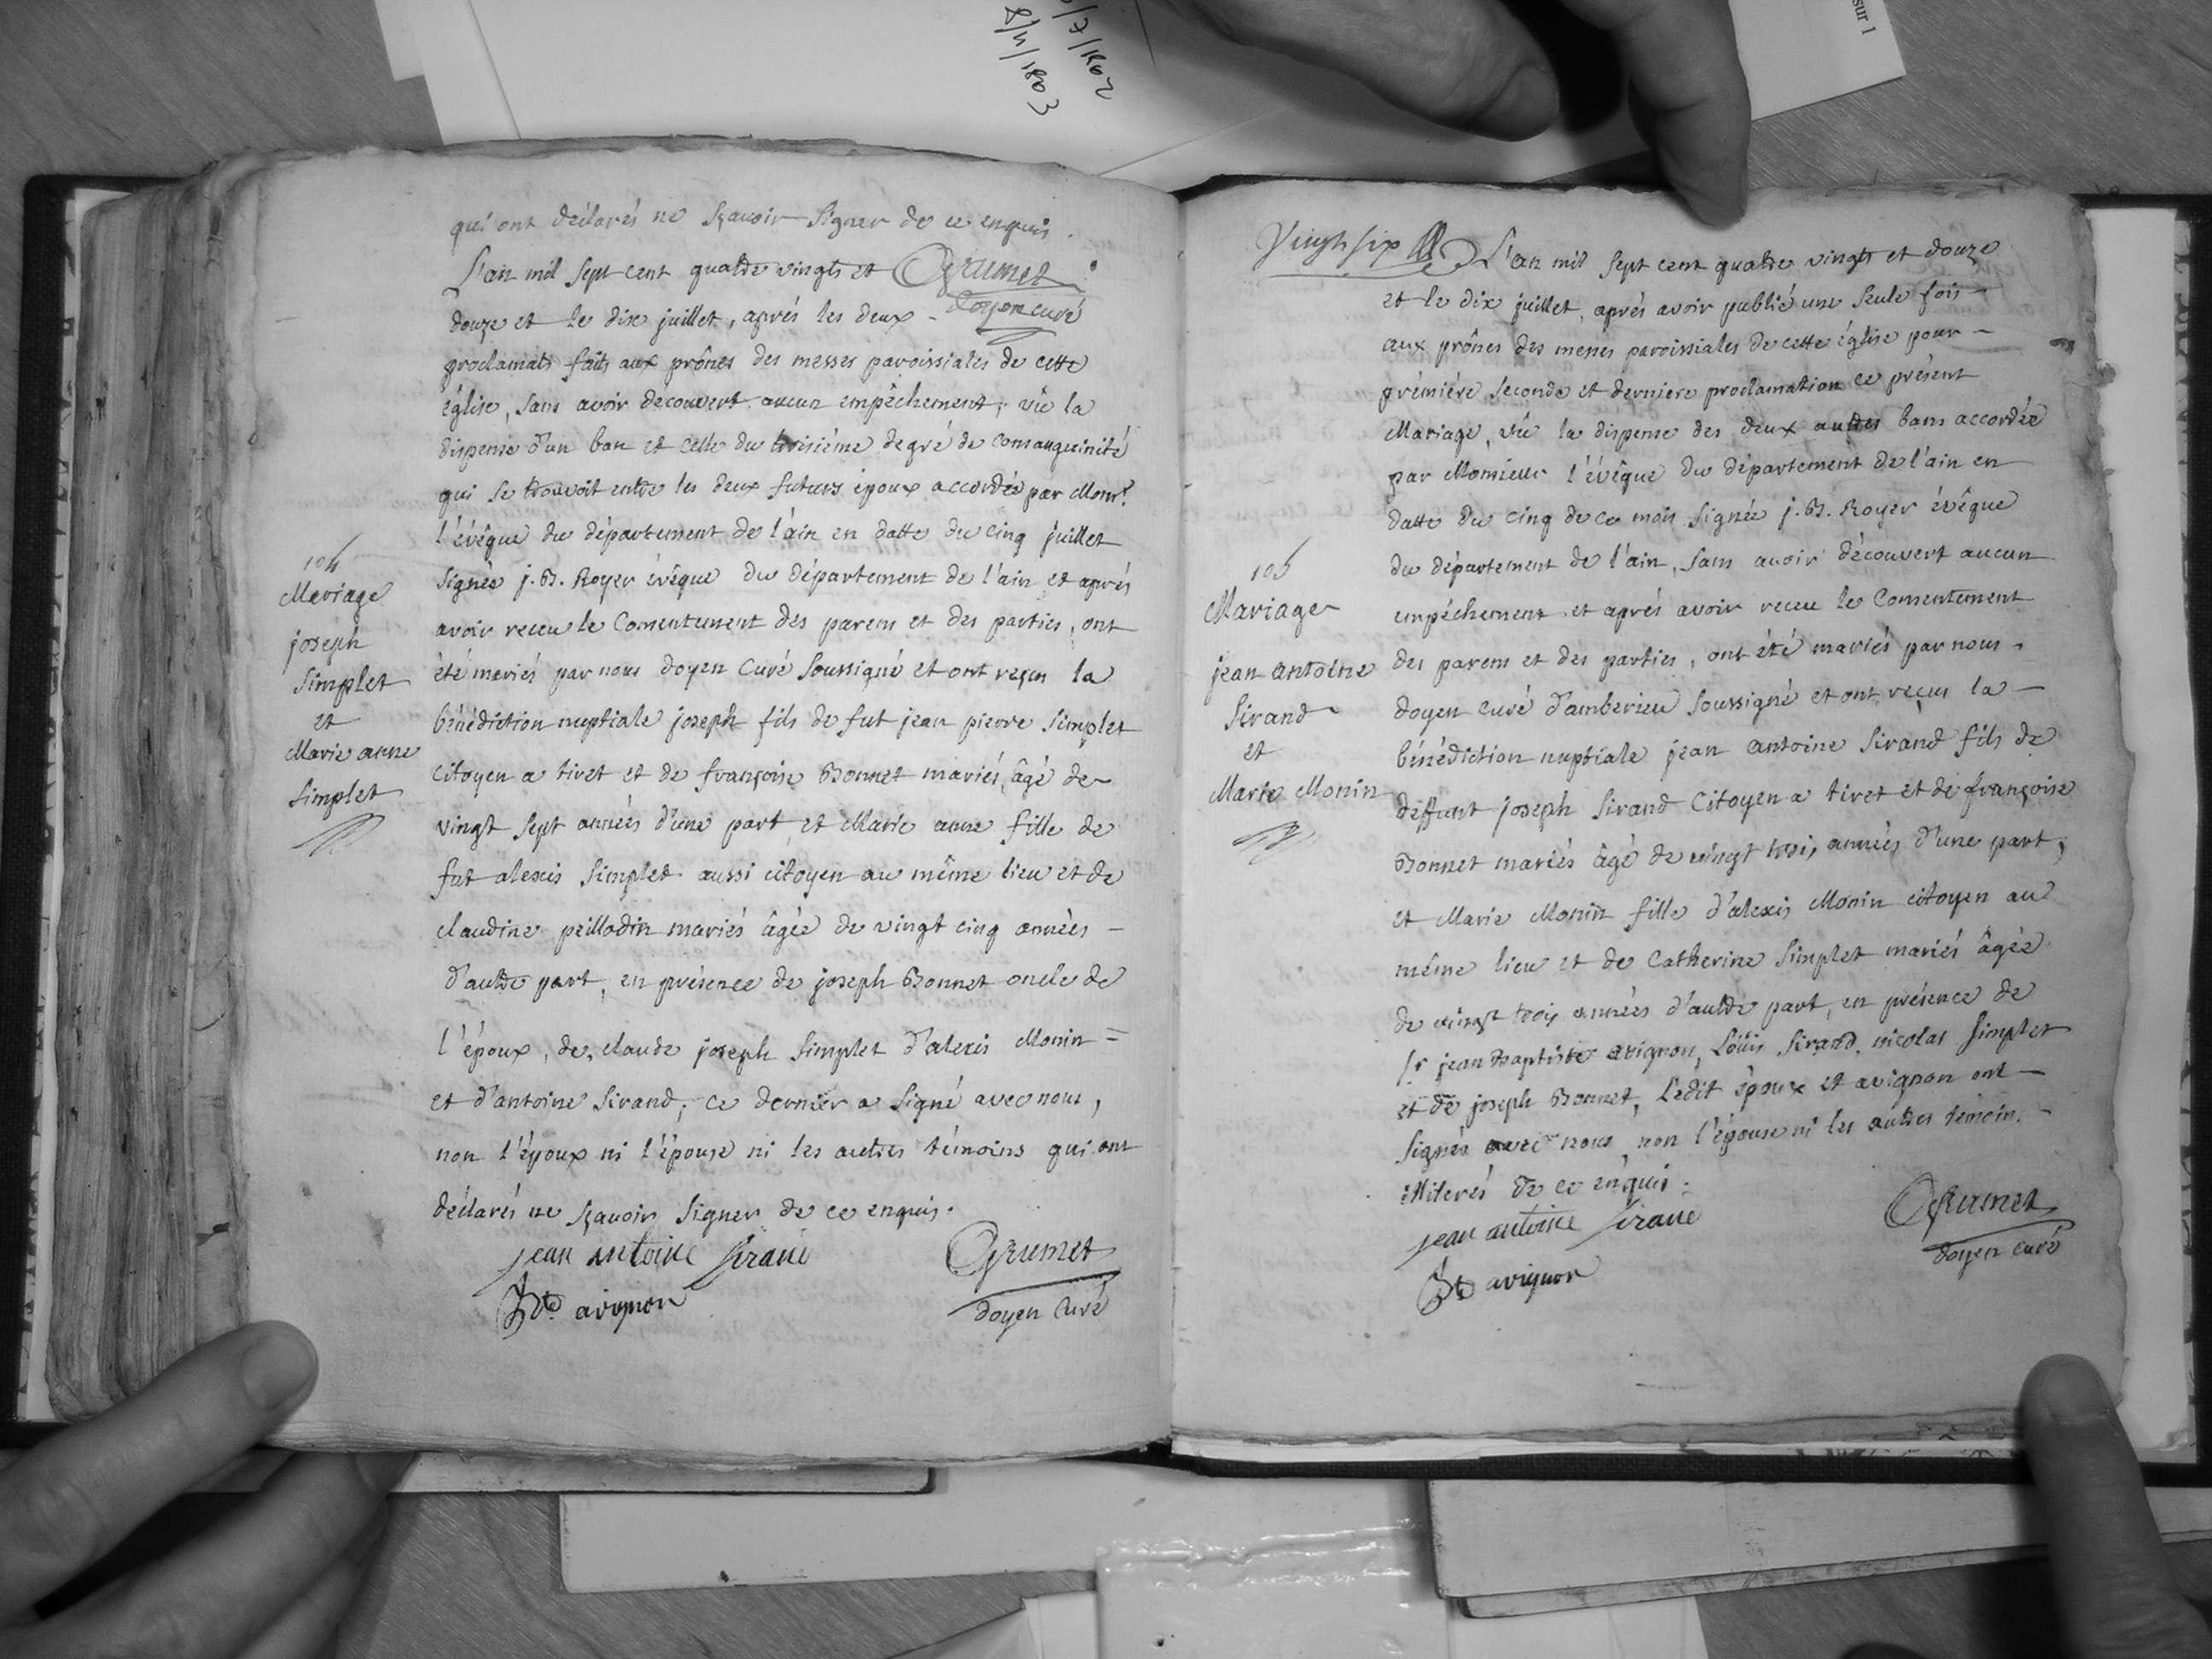 sur 1
/7/1802
8/4/1803
qui ont déclarés ne sçavoir signer de ce enquis.
L'an mil sept cent quatre vingts et Grumet
doyen curé
douze et le dix juillet, aprés les deux
proclamats faits aux prônes des messes paroissiales de cette
église, sans avoir decouvert aucun empêchement, vû la
dispense d'un ban et celle du troisiéme degré de consanguinité
qui se trouvoit entre les deux futurs époux accordée par Monsr.
l'évêque du département de l'ain en datte du cinq juillet
signés j. B. Royer évêque du département de l'ain et aprés
avoir receu le Consentement des parens et des parties, ont
été mariés par nous doyen Curé soussigné et ont reçus la
bénédiction nuptiale joseph fils de fut jean pierre Simplet
Citoyen a tiret et de françoise Bonnet mariés, âgé de
vingt sept années d'une part et Marie anne fille de
fut alexis Simplet aussi citoyen au même lieu et de
claudine peillodin mariés âgée de vingt cinq années -
d'autre part, en présence de joseph Bonnet oncle de
l'époux, de claude joseph Simplet d'alexis Monin =
et d'antoine Sirand; ce dernier a signé avec nous,
non l'époux ni l'épouse ni les autres témoins qui ont
déclarés ne sçavoir signer de ce enquis.
jean antoine Sirand
Grumet
Bte. avignon
doyen Curé
104
Mariage
joseph
Simplet
et
Marie anne
Simplet
Vingt six
L'an mil sept cent quatre vingts et douze
et le dix juillet, aprés avoir publié une seule fois -
aux prônes des messes paroissiales de cette église pour -
prémiére seconde et derniere proclamation ce présent
Mariage, vû la dispense des deux autres bans accordée
par Monsieur l'évêque du département de l'ain en
datte du cinq de ce mois signée j. B. Royer évêque
du département de l'ain, sans avoir découvert aucun
empéchement et aprés avoir receu le Consentement
des parens et des parties, ont été mariés par nous
doyen curé d'amberieu soussigné et ont reçus la -
bénédiction nuptiale jean antoine Sirand fils de
deffunt joseph Sirand Citoyen a tiret et de françoise
Bonnet mariés âgé de vingt trois années d'une part,
et Marie Monin fille d'alexis Monin citoyen au
même lieu et de Catherine Simplet mariés âgée
de vingt trois années d'autre part, en présence de
sr jean Baptiste avignon, Loüis Sirand, nicolas Simplet
et de joseph Bonnet, Ledit époux et avignon ont -
signés avec nous, non l'épouse ni les autres témoins -
illiterés de ce enquis.
jean antoine Sirand
Grumet
doyen curé
Bte avignon
105
Mariage
jean antoine
Sirand
et
Marie Monin